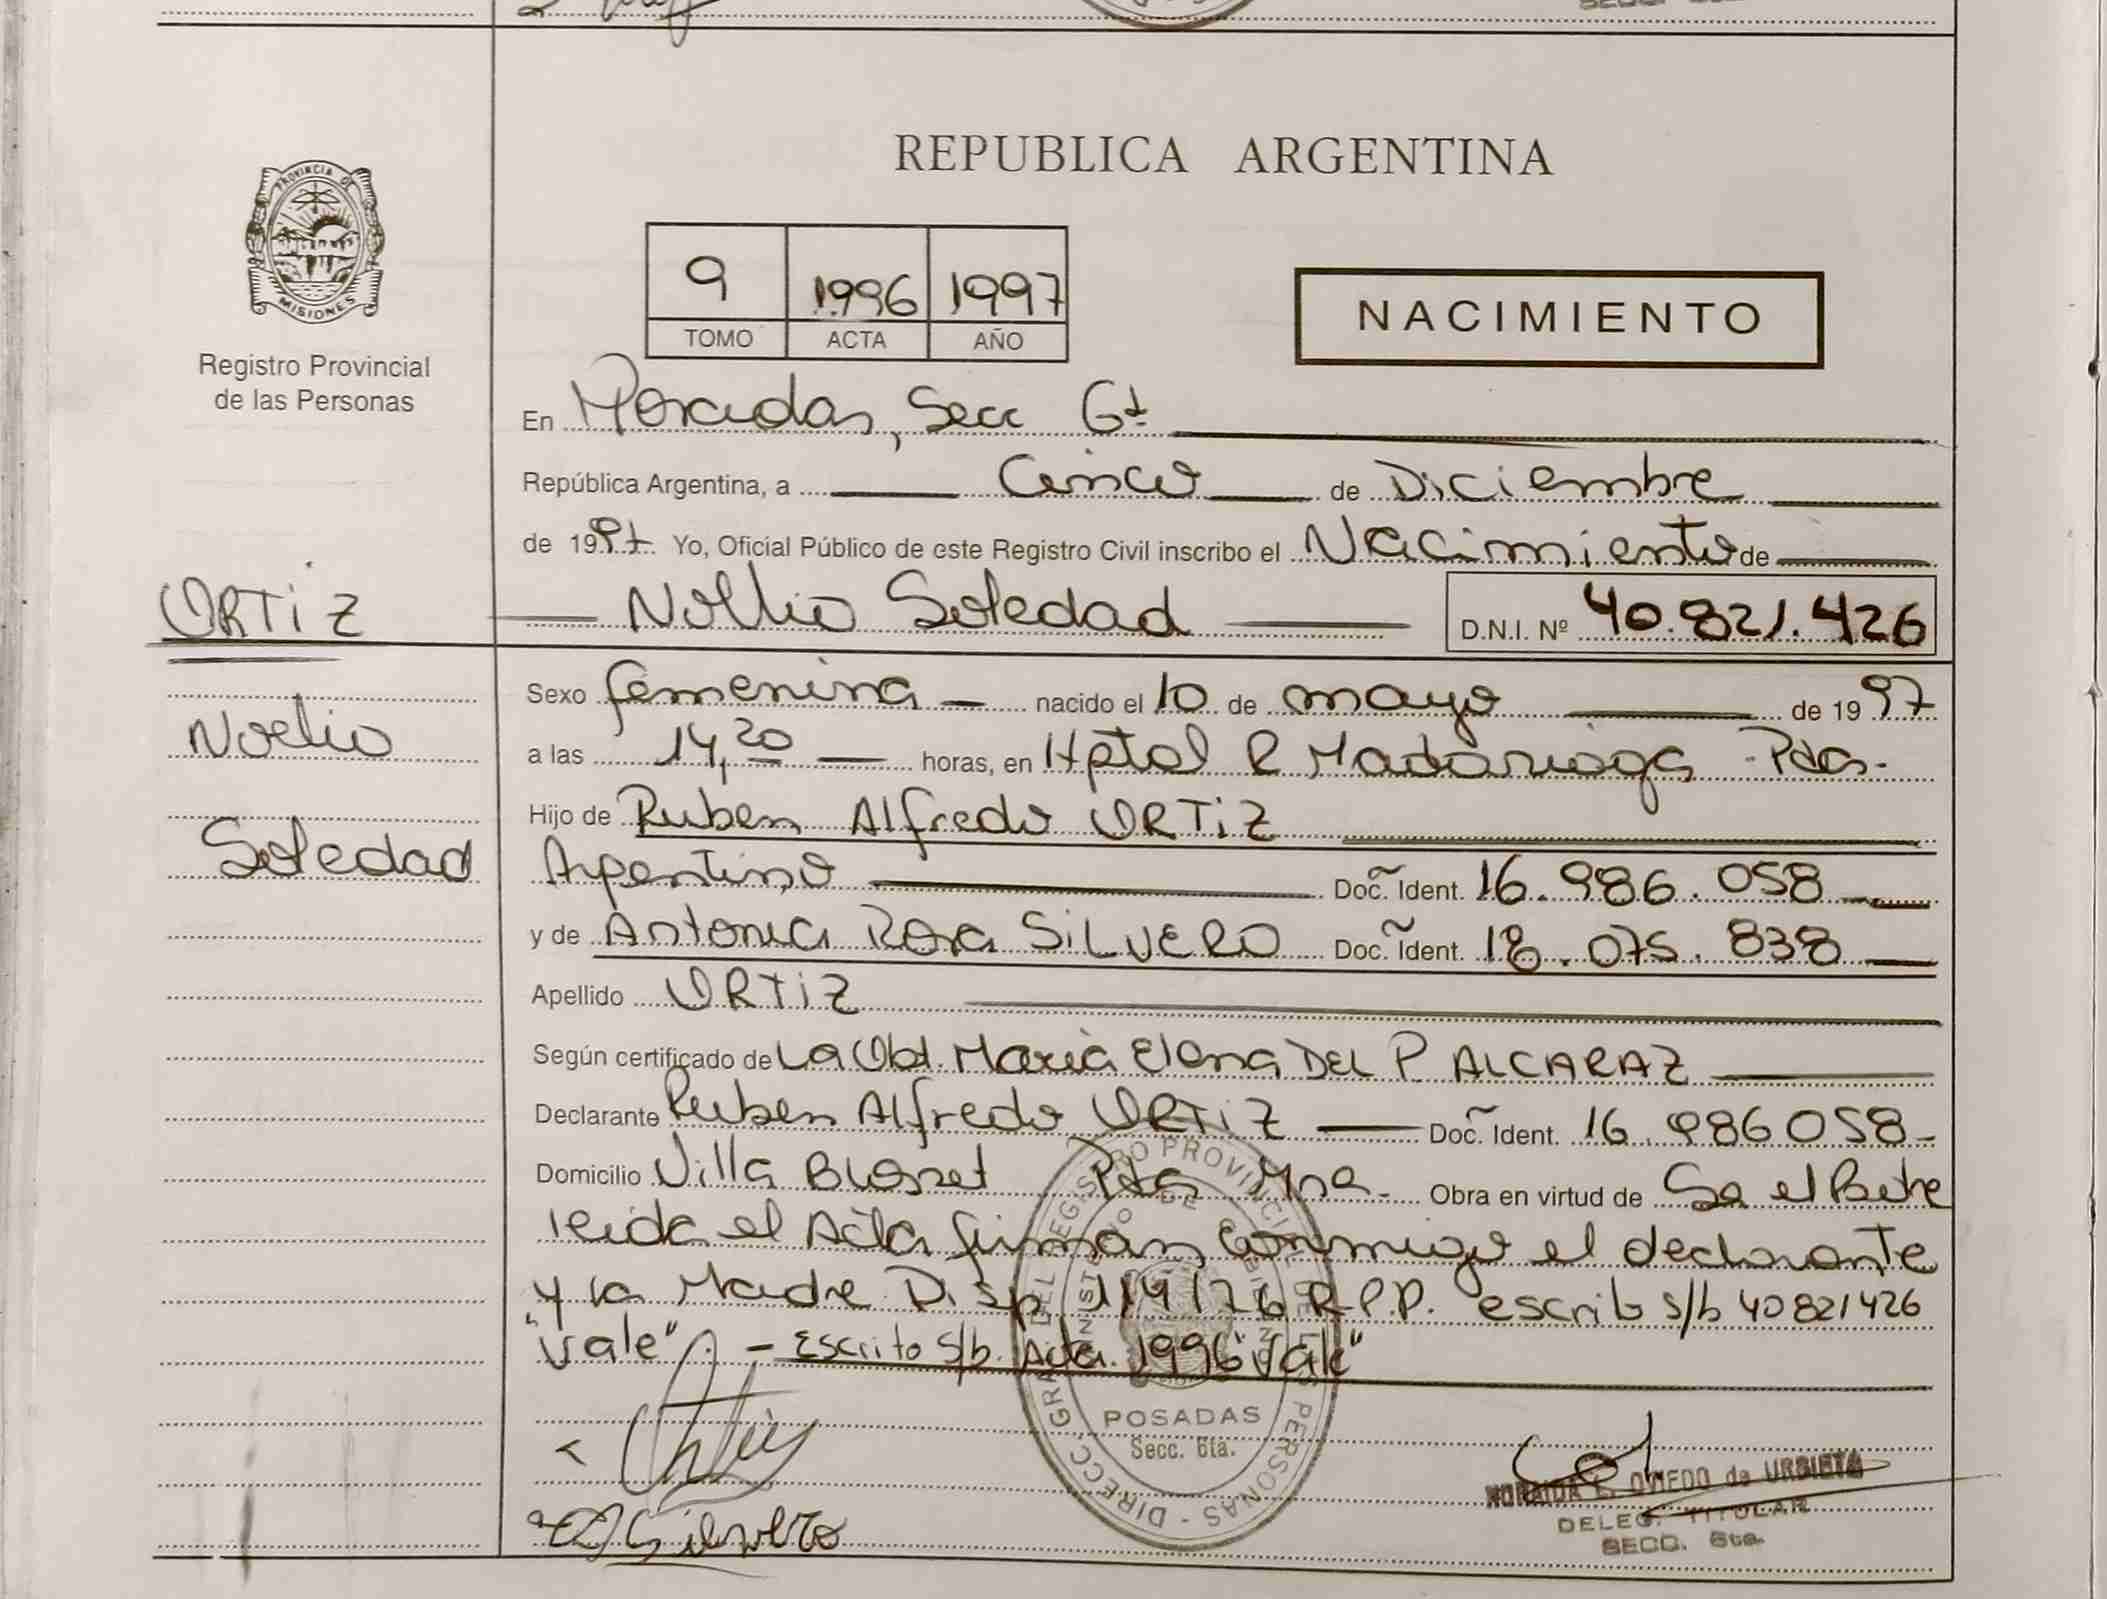 REPUBLICA ARGENTINA
PROVINCIA DE
MISIONES
Registro Provincial
de las Personas
9 1996 1997
TOMO ACTA AÑO
NACIMIENTO
En Posadas, Secc 6ta
República Argentina, a Cinco de Diciembre
de 1997 Yo, Oficial Público de este Registro Civil inscribo el Nacimiento de
ORTIZ
Noelia Soledad D.N.I. Nº 40.821.426
Noelia
Soledad
Sexo femenina nacido el 10 de mayo de 1997
a las 14,20 horas, en Hptal R Madariaga -Pdas-
Hijo de Ruben Alfredo ORTIZ
Argentino Doc. Ident. 16.986.058
y de Antonia Rosa SILVERO Doc. Ident. 18.075.838
Apellido ORTIZ
Según certificado de La Obst. Maria Elena DEL P. ALCARAZ
Declarante Ruben Alfredo ORTIZ Doc. Ident. 16.986058-
Domicilio Villa Blosset Pdas Mnes. Obra en virtud de Ser el Padre
leida el Acta firman conmigo el declarante
y la Madre Disp 119/76 R.P.P. escrito s/b 40821426
"vale". - Escrito s/b. Acta. 1996 "vale"
DIRECC. GRAL DEL REGISTRO PROVINCIAL DE LAS PERSONAS
MINISTERIO DE GOBIERNO
POSADAS
Secc. 6ta.
Ortiz
Silvero
NORAIDA E. OVIEDO de URBIETA
DELEG. TITULAR
SECC. 6ta.